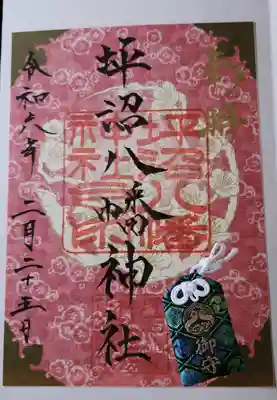 奉拝
坪沼八幡神社
坪沼八幡
令和六年 二月二十五日
御守